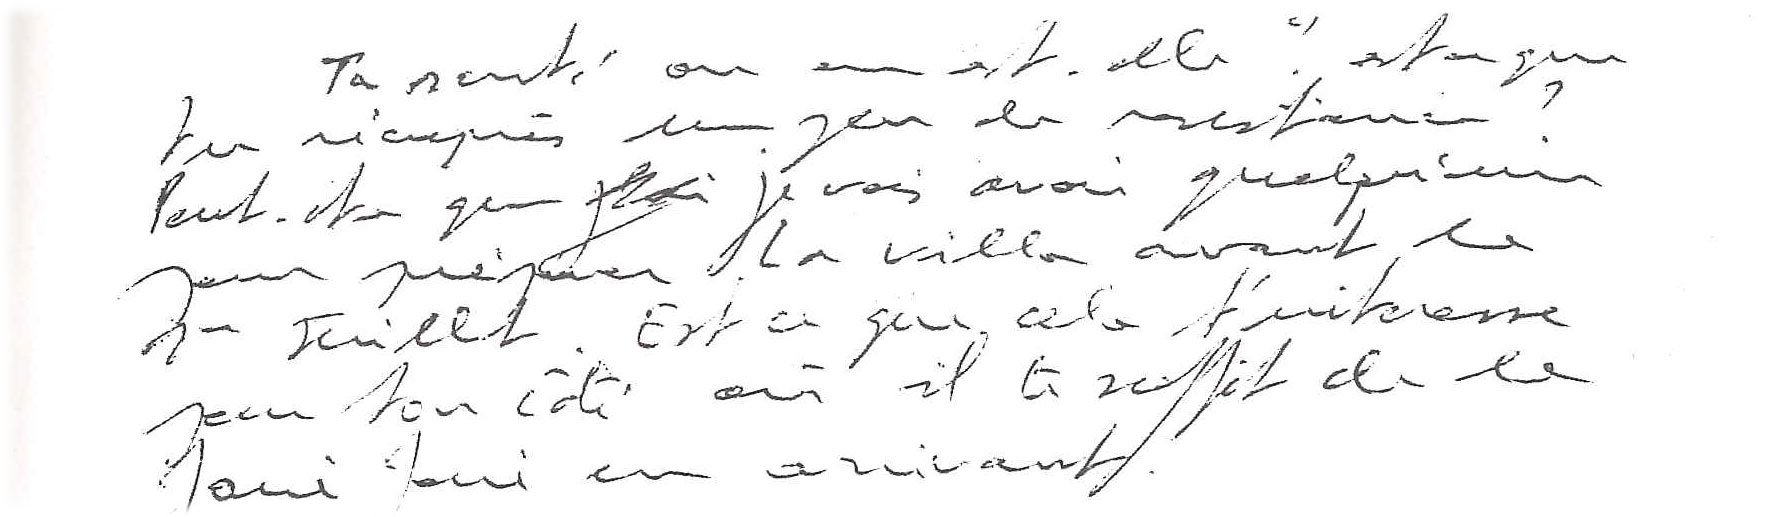 Ta santé ou en est-elle ? est ce que
tu récupères un peu de resistance ?
Peut-etre que je vais avoir quelqu'un
pour préparer la villa avant le
Juillet. Est ce que cela t'interesse
pour ton côté ou il te suffit de le
faire en arrivant.